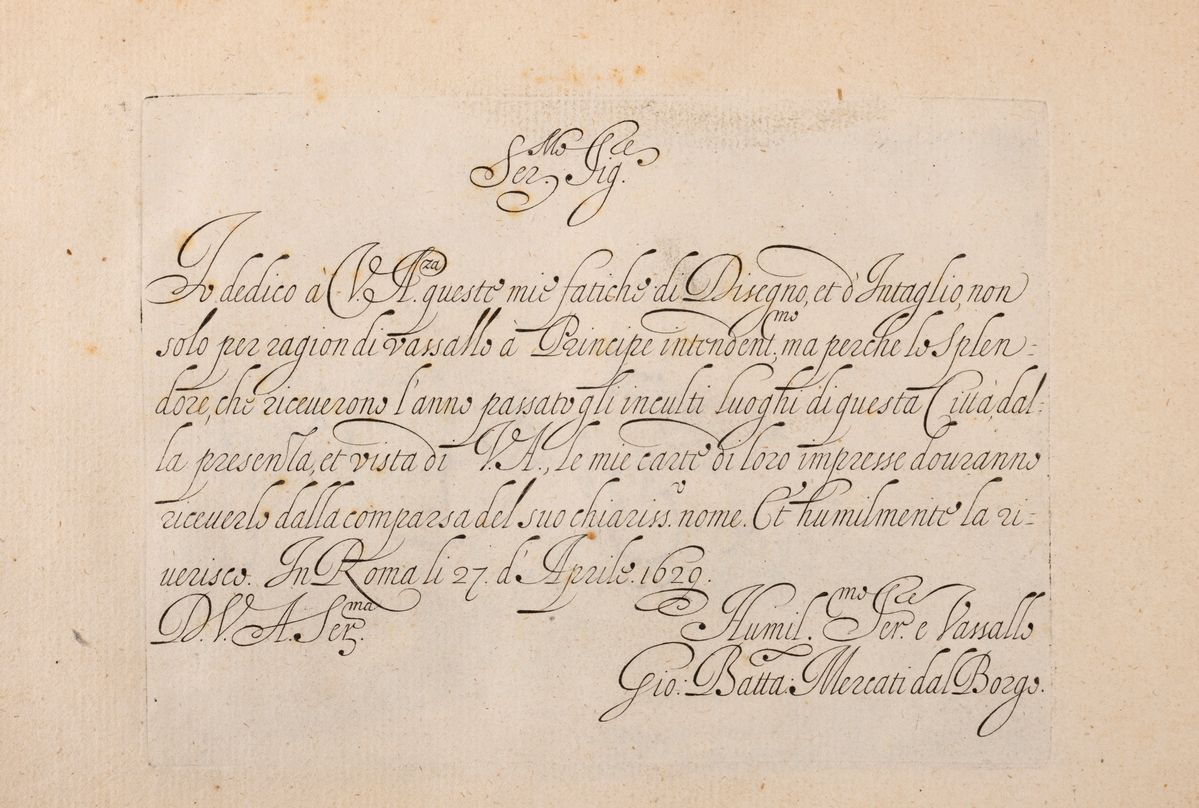 Ser.mo Sig.re
Io dedico à V. A.za queste mie fatiche di Disegno, et d'Intaglio, non
solo per ragion di vassallo à Principe intendent.mo, ma perche lo splen=
dore, che riceuerono l'anno passato gli inculti luoghi di questa Città, dal=
la presenza, et vista di V.A., le mie carte di loro impresse douranno
riceuerlo dalla comparsa del suo chiariss.o nome. Et humilmente la ri=
uerisco. In Roma li 27. d'Aprile. 1629.
D. V. A. Ser.ma
Humil.mo Ser.re e Vassallo
Gio: Batta: Mercati dal Borgo.